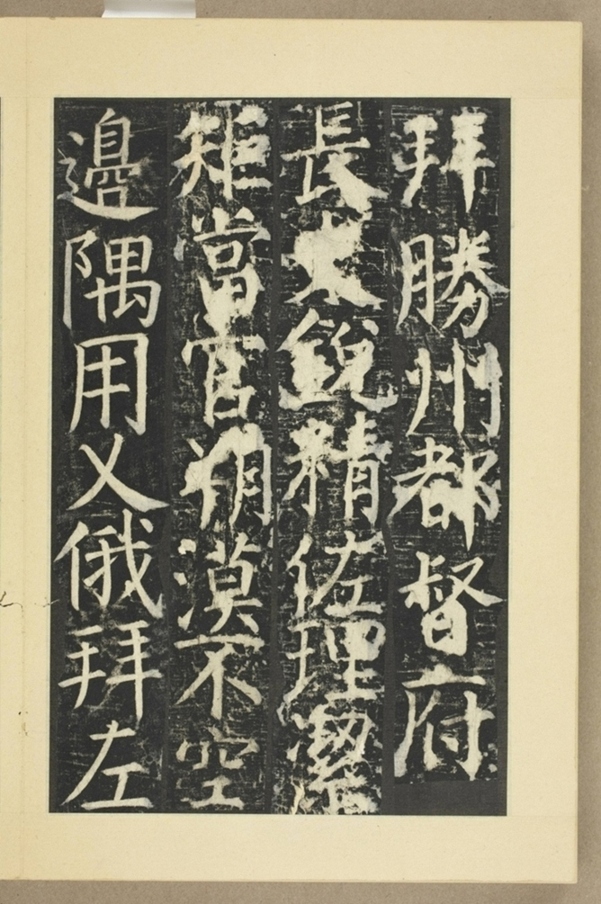 拜勝州都督府
長史銳精佐理潔
矩當官朔漠不空
邊隅用乂俄拜左